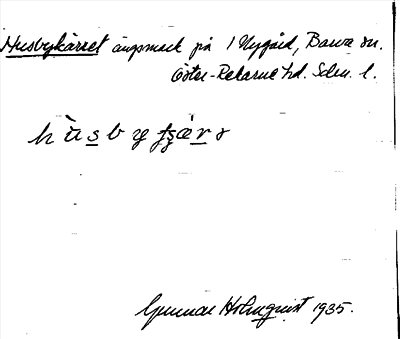 Husbykärret ängsmark på 1 Nygård, Barva sn.
Öster-Rekarne hd. Sdm. l.
Gunnar Holmquist 1935.